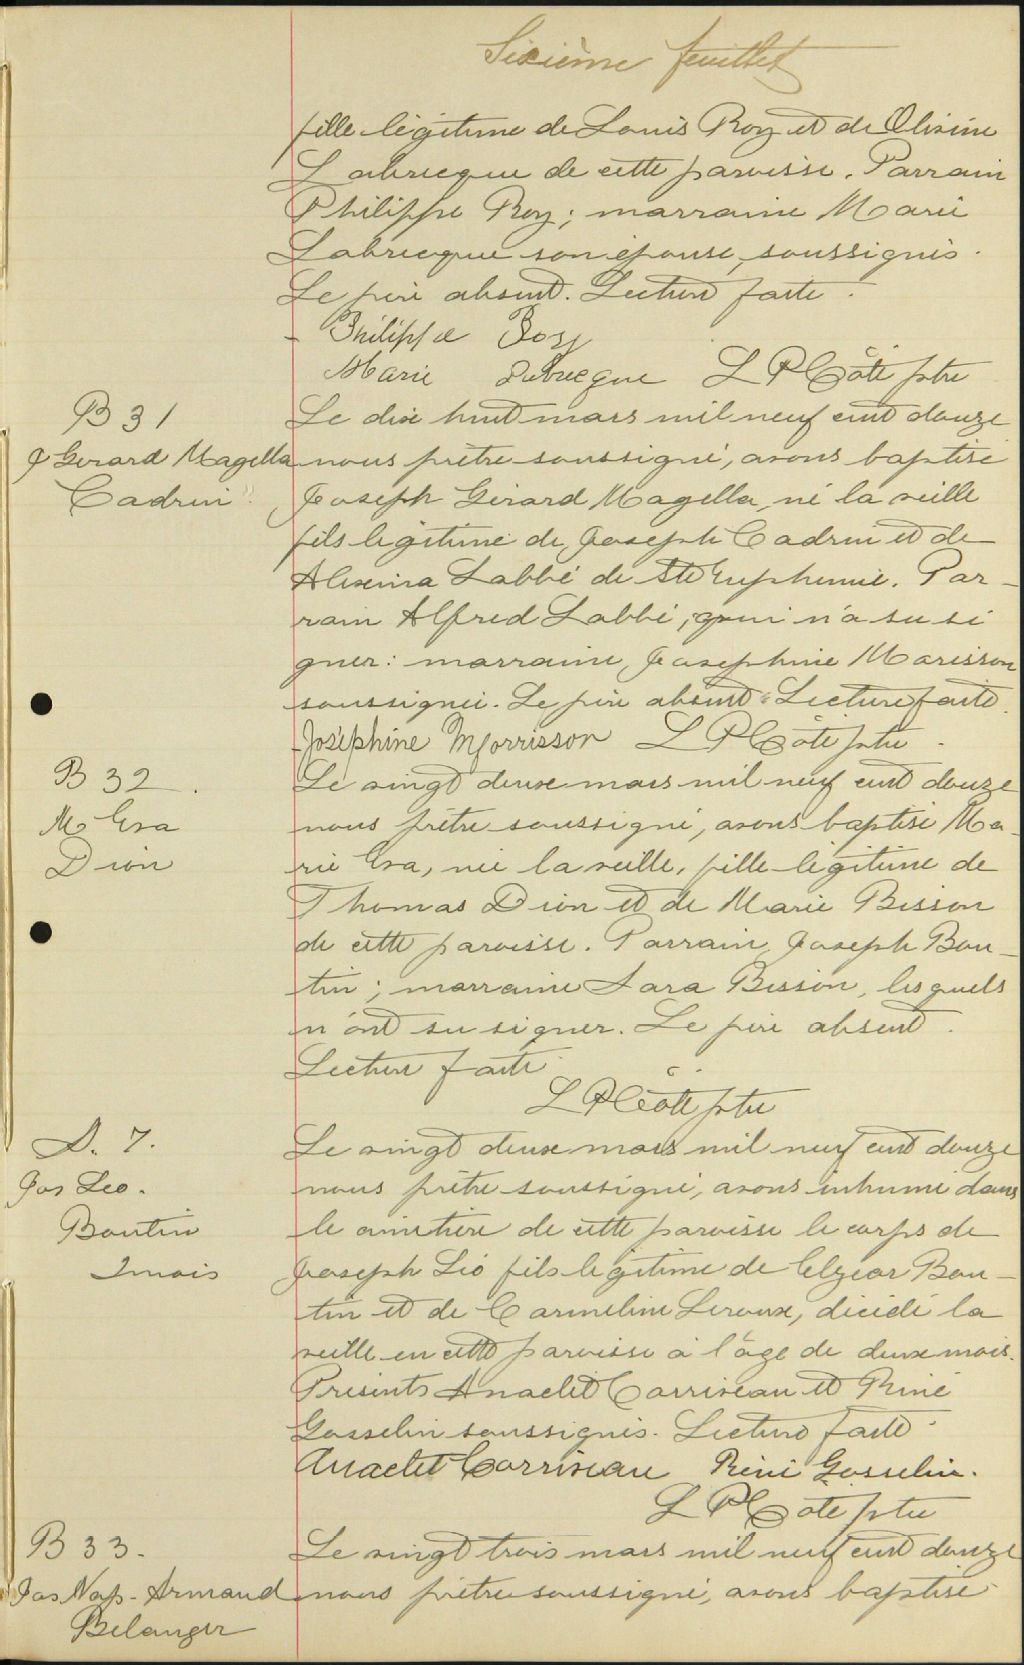 Sixième feuillet
fille légitime de Louis Roy et de Olivine
Labrecque de cette paroisse. Parrain
Philippe Roy; marraine Marie
Labrecque son épouse, soussignés.
Le père absent. Lecture faite.
Philippe Roy
Marie Labrecque L P Côté ptre
B 31
J Gerard Magella
Cadrin
Le dix huit mars mil neuf cent douze
nous prêtre soussigné, avons baptisé
Joseph Gérard Magella, né la veille
fils légitime de Joseph Cadrin et de
Alexina Labbé de Ste Euphemie. Par-
rain Alfred Labbé, qui n'a su si
gner: marraine, Josephine Morisson
soussignée. Le père absent. Lecture faite.
Joséphine Morrisson L P Côté ptre
B 32.
M Eva
Dion
Le vingt deux mars mil neuf cent douze
nous prêtre soussigné, avons baptisé Ma-
rie Eva, née la veille, fille légitime de
Thomas Dion et de Marie Bisson
de cette paroisse. Parrain, Joseph Bou-
tin; marraine Sara Bisson, lesquels
n'ont su signer. Le père absent.
Lecture faite.
L P Côté ptre
D. 7.
Jos Leo.
Boutin
2 mois
Le vingt deux mars mil neuf cent douze
nous prêtre soussigné, avons inhumé dans
le cimetière de cette paroisse le corps de
Joseph Léo fils légitime de Elzear Bou-
tin et de Carmeline Leroux, décédé la
veille en cette paroisse à l'âge de deux mois.
Présents Anaclet Corriveau et Réné
Gosselin soussignés. Lecture faite.
Anaclet Corriveau Réné Gosselin.
L P Côté ptre
B 33.
Jos Nap. Armand
Belanger
Le vingt trois mars mil neuf cent douze
nous prêtre soussigné, avons baptisé